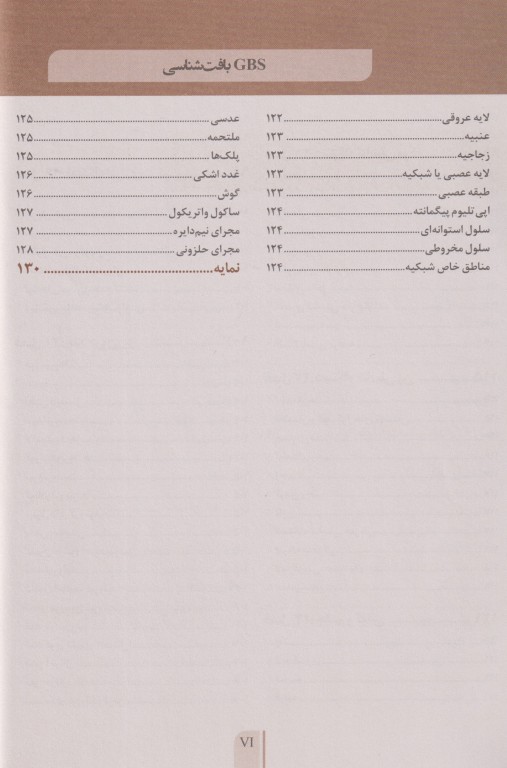 GBS بافت‌شناسی
لایه عروقی ........ ۱۲۲
عنبیه ........ ۱۲۳
زجاجیه ........ ۱۲۳
لایه عصبی یا شبکیه ........ ۱۲۳
طبقه عصبی ........ ۱۲۳
اپی تلیوم پیگمانته ........ ۱۲۴
سلول استوانه‌ای ........ ۱۲۴
سلول مخروطی ........ ۱۲۴
مناطق خاص شبکیه ........ ۱۲۴
عدسی ........ ۱۲۵
ملتحمه ........ ۱۲۵
پلک‌ها ........ ۱۲۵
غدد اشکی ........ ۱۲۶
گوش ........ ۱۲۶
ساکول واتریکول ........ ۱۲۷
مجرای نیم‌دایره ........ ۱۲۷
مجرای حلزونی ........ ۱۲۸
نمایه ........ ۱۳۰
VI